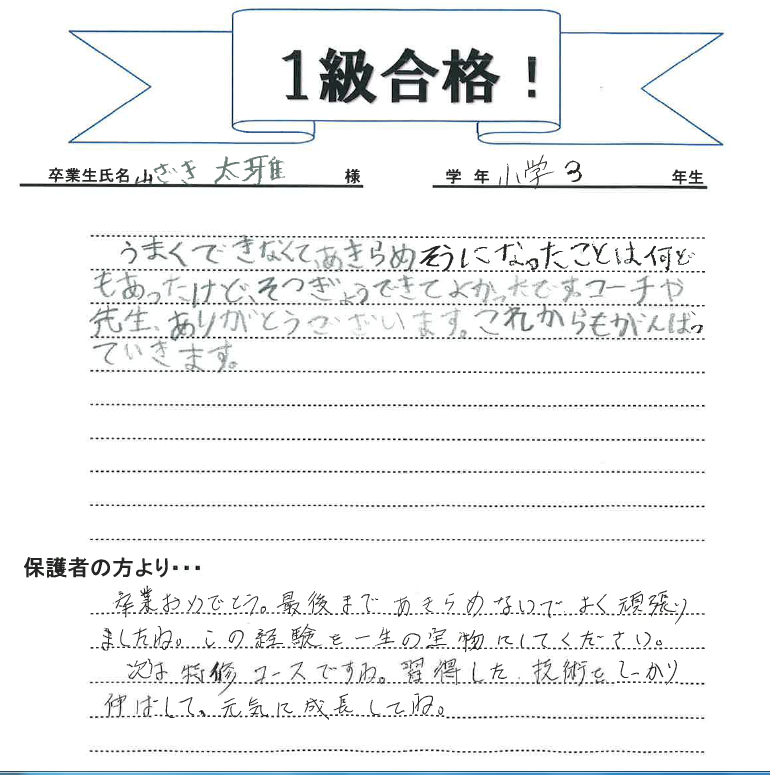 1級合格！
卒業生氏名 山ざき 太雅 様 学年 小学3 年生
うまくできなくて、あきらめそうになったことは何ど
もあったけど、そつぎょうできてよかったです。コーチや
先生、ありがとうございます。これからもがんばっ
ていきます。
保護者の方より・・・
卒業おめでとう。最後まであきらめないでよく頑張り
ましたね。この経験を一生の宝物にしてください。
次は特修コースですね。習得した技術をしっかり
伸ばして、元気に成長してね。